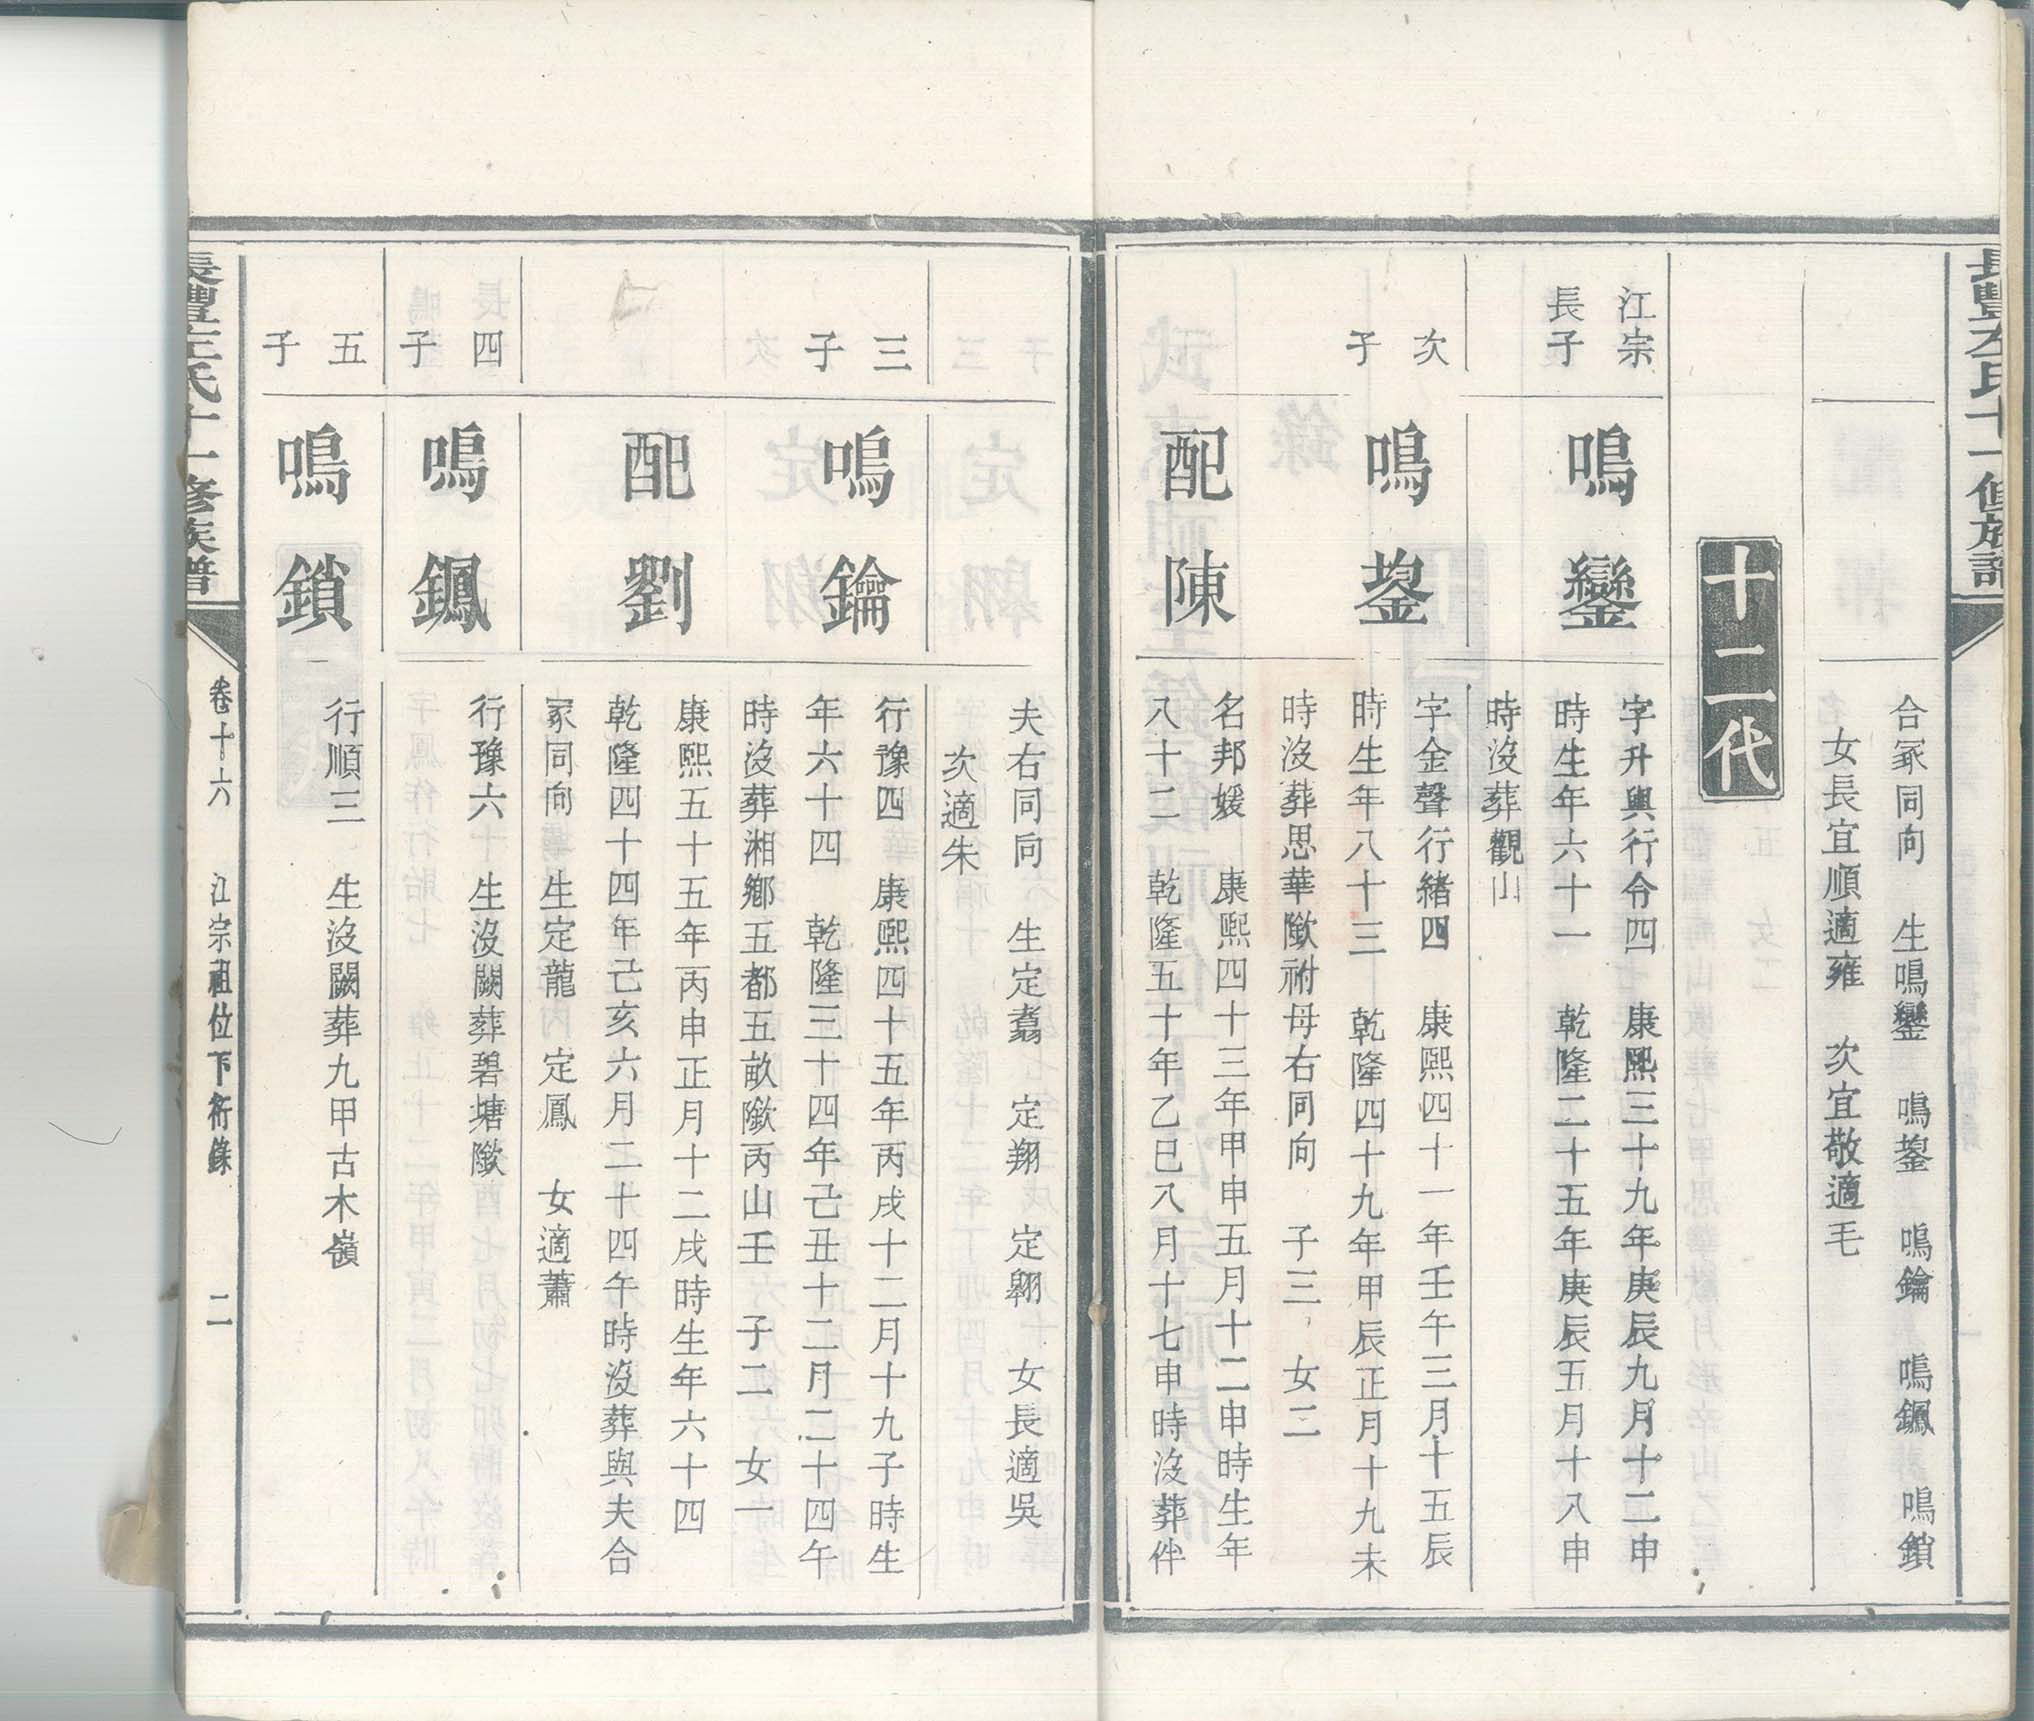 長豐左氏十一修族譜
合冢同向　生鳴鑾　鳴鋆　鳴鑰　鳴鍘　鳴鎖
女長宜順適雍　次宜敬適毛
十二代
江宗
長子
鳴鑾
字升輿行令四　康熙三十九年庚辰九月十二申
時生年六十一　乾隆二十五年庚辰五月十八申
時沒葬觀山
次子
鳴鋆
字金聲行緒四　康熙四十一年壬午三月十五辰
時生年八十三　乾隆四十九年甲辰正月十九未
時沒葬思華歘祔母右同向　子三　女二
配陳
名邦媛　康熙四十三年甲申五月十二申時生年
八十二　乾隆五十年乙巳八月十七申時沒葬伴
夫右同向　生定翥　定翔　定翱　女長適吳
次適朱
三子
鳴鑰
行豫四　康熙四十五年丙戌十二月十九子時生
年六十四　乾隆三十四年己丑十二月二十四午
時沒葬湘鄉五都五畝歘丙山壬　子二　女一
配劉
康熙五十五年丙申正月十二戌時生年六十四
乾隆四十四年己亥六月二十四午時沒葬與夫合
冢同向　生定龍　定鳳　女適蕭
四子
鳴
行豫六　生沒闕葬碧塘歘
五子
鳴鎖
行順三　生沒闕葬九甲古木嶺
長豐左氏十一修族譜
卷十六　江宗祖位下衍錄　二